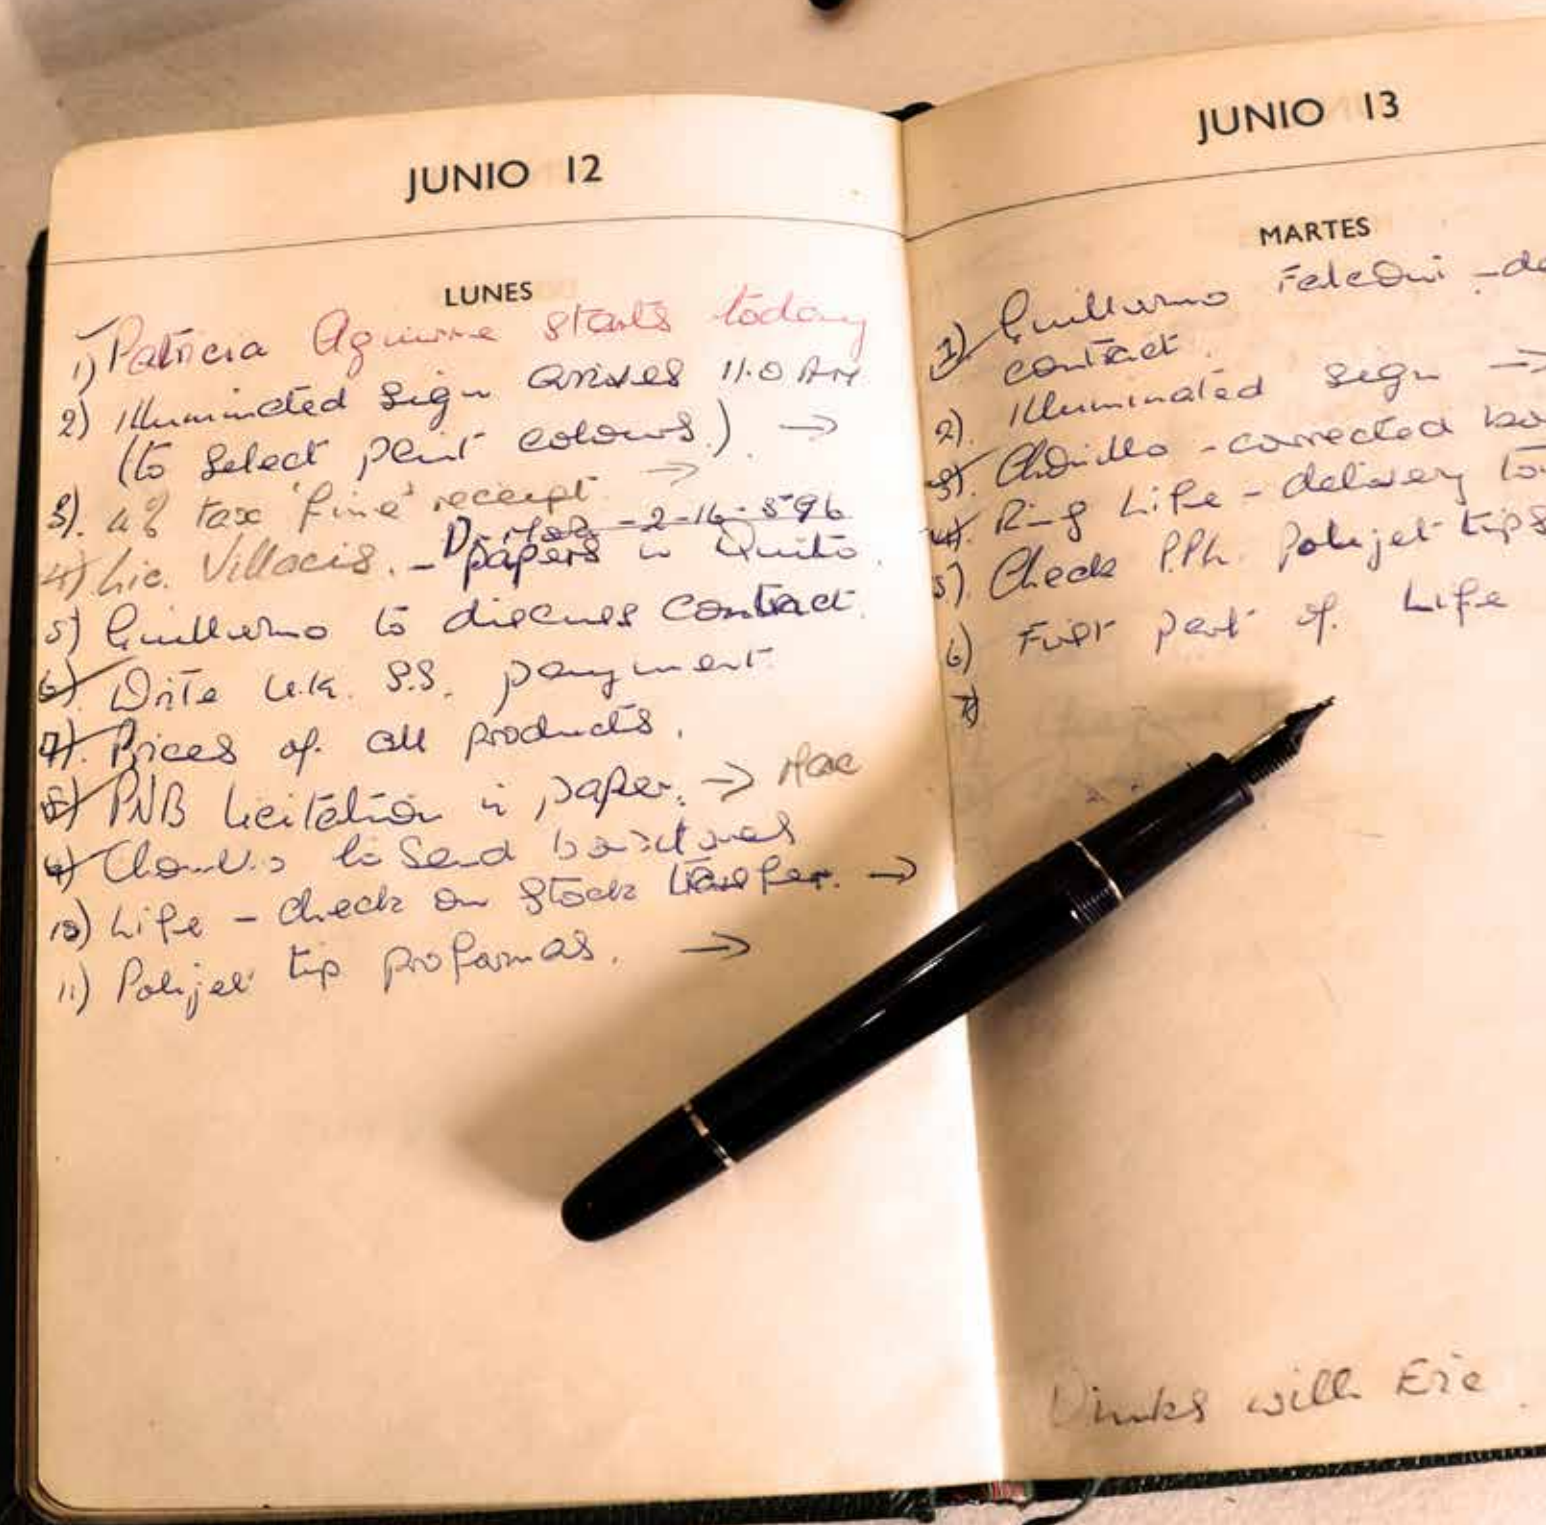 JUNIO 12
LUNES
1) Patricia Aguirre starts today
2) Illuminated sign arrives 11.0 AM
(to select paint colours.) →
3). 4% tax 'fine' receipt. →
- 2-16-596
4) Lic. Villacis. - papers in Quito.
5) Guillermo to discuss contract.
6) Write U.K. S.S. payment.
7). Prices of all products.
8) PNB Licitation in paper. →
9) to send
10) Life - check on stock transfer. →
11) Polijet tip proformas. →
JUNIO 13
MARTES
1) Guillermo Falconi - de
contract.
2). Illuminated sign →
3). - corrected
4). Ring Life - delivery to
5). Check P.Ph. Polijet tips
6) First part of Life
7)
Drinks with Eric